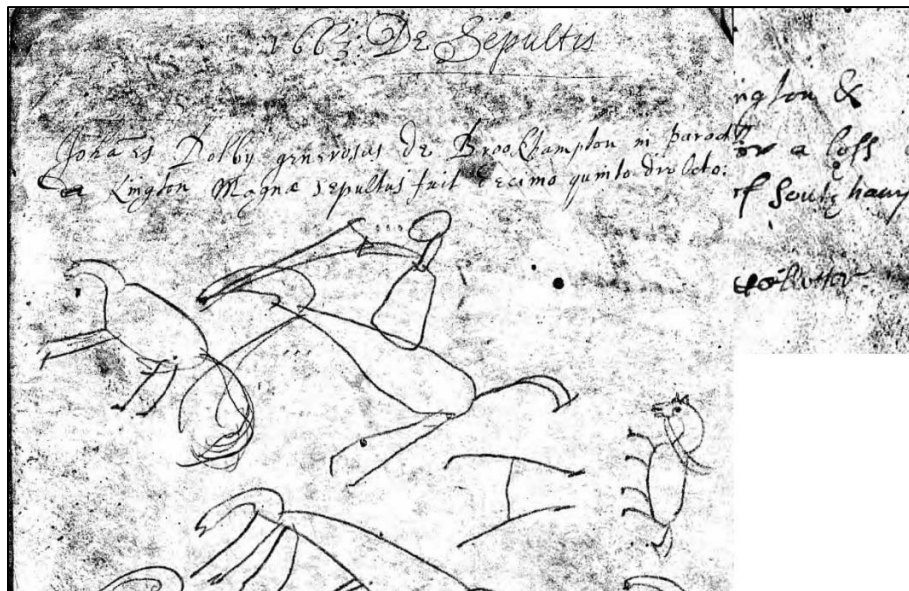 1663 De Sepultis
Johāēs Dolby generosus de Brookhampton in paroch
Kington Magnæ sepultus fuit decimo quinto die Octo:
ngton &
or a loss
of South hamp